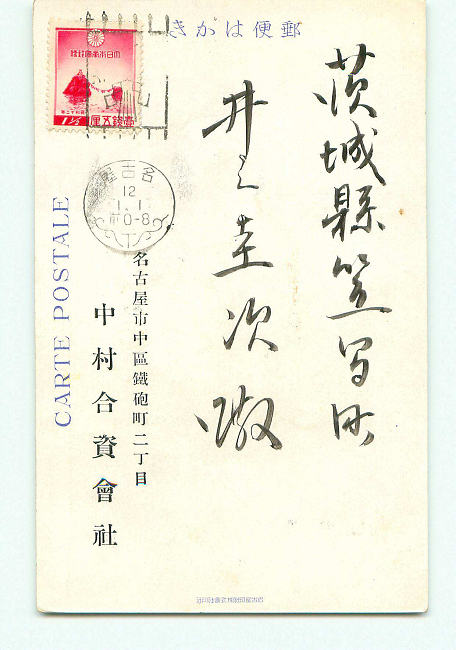 郵便はがき
茨城縣笠間町
井上圭次殿
名古屋市中區鐵砲町二丁目
中村合資會社
CARTE POSTALE
大日本帝國郵便
1½ 壹錢五厘
名古屋
12
1.1
前0-8